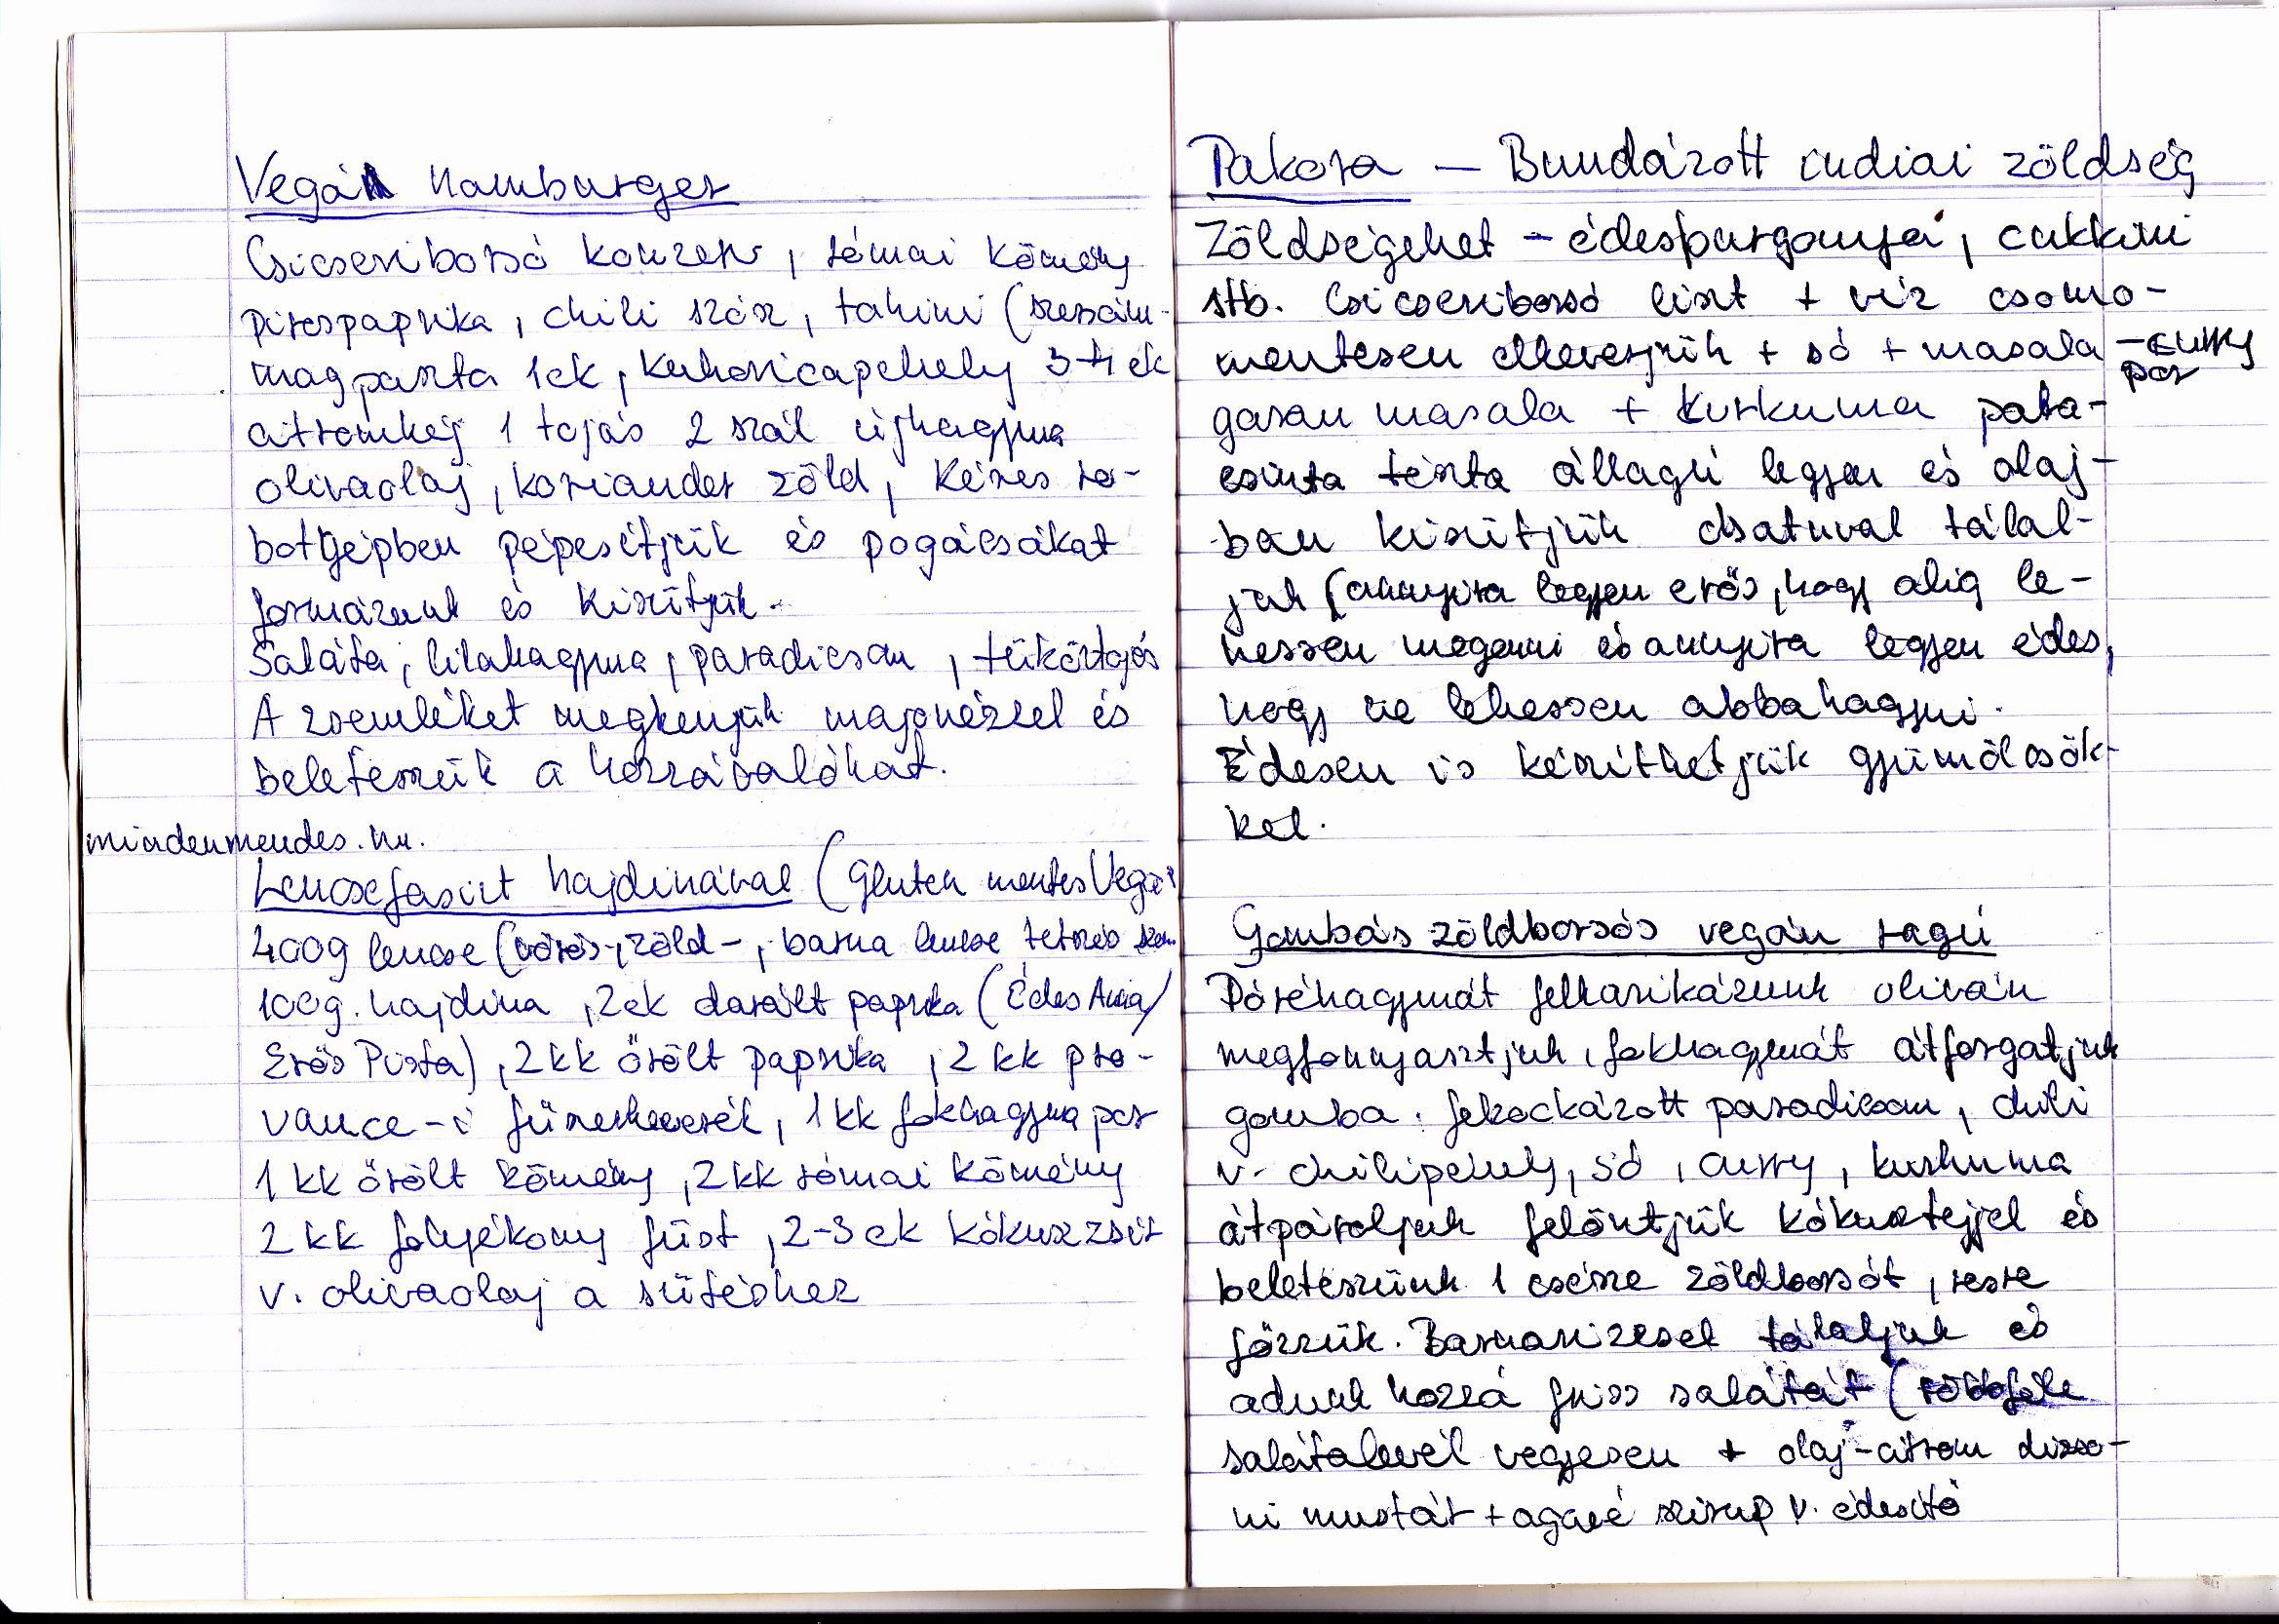 Vegán hamburger
Csicseriborsó konzerv, római kömény
pirospaprika, chili szósz, tahini (szezám-
magpaszta 1ek, kukoricapehely 3-4 ek
citromhéj 1 tojás 2 szál újhagyma
olivaolaj, koriander zöld, kézes ro-
botgépben pépesítjük és pogácsákat
formázunk és kisütjük.
Saláta, lilahagyma, paradicsom, tükörtojás
A zsemléket megkenjük majonézzel és
beletesszük a hozzávalókat.
mindenmendes.hu.
Lencsefasirt hajdinával (Gluten mentes Vegán
400g lencse (vörös-, zöld-, barna lencse tetszés szer.
100g. hajdina, 2ek darált paprika (Édes Anna/
Erős Pista), 2kk őrölt paprika, 2 kk pro-
vance-i fűszerkeverék, 1kk fokhagyma por
1 kk őrölt kömény, 2kk római kömény
2 kk folyékony füst, 2-3 ek kókuszzsír
v. olivaolaj a sütéshez
Pakora — Bundázott indiai zöldség
Zöldségeket - édesburgonya, cukkini
stb. Csicseriborsó liszt + víz csomó-
mentesen elkeverjük + só + masala - curry por
garam masala + kurkuma pala-
csinta tészta állagú legyen és olaj-
ban kisütjük chatnival tálal-
juk (annyira legyen erős, hogy alig le-
hessen megenni és annyira legyen édes,
hogy ne lehessen abbahagyni.
Édesen is készíthetjük gyümölcsök-
kel.
Gombás zöldborsós vegán ragú
Póréhagymát felkarikázunk oliván
megfonnyasztjuk, fokhagymát átforgatjuk
gomba. felkockázott paradicsom, chili
v. chilipehely, só, curry, kurkuma
átpároljuk felöntjük kókusztejjel és
beleteszünk 1 csésze zöldborsót, resre
főzzük. Barnarizzsel tálaljuk és
adunk hozzá friss salátát (többféle
salátalevél vegyesen + olaj-citrom dizso-
ni mustár + agavé szirup v. édesítő